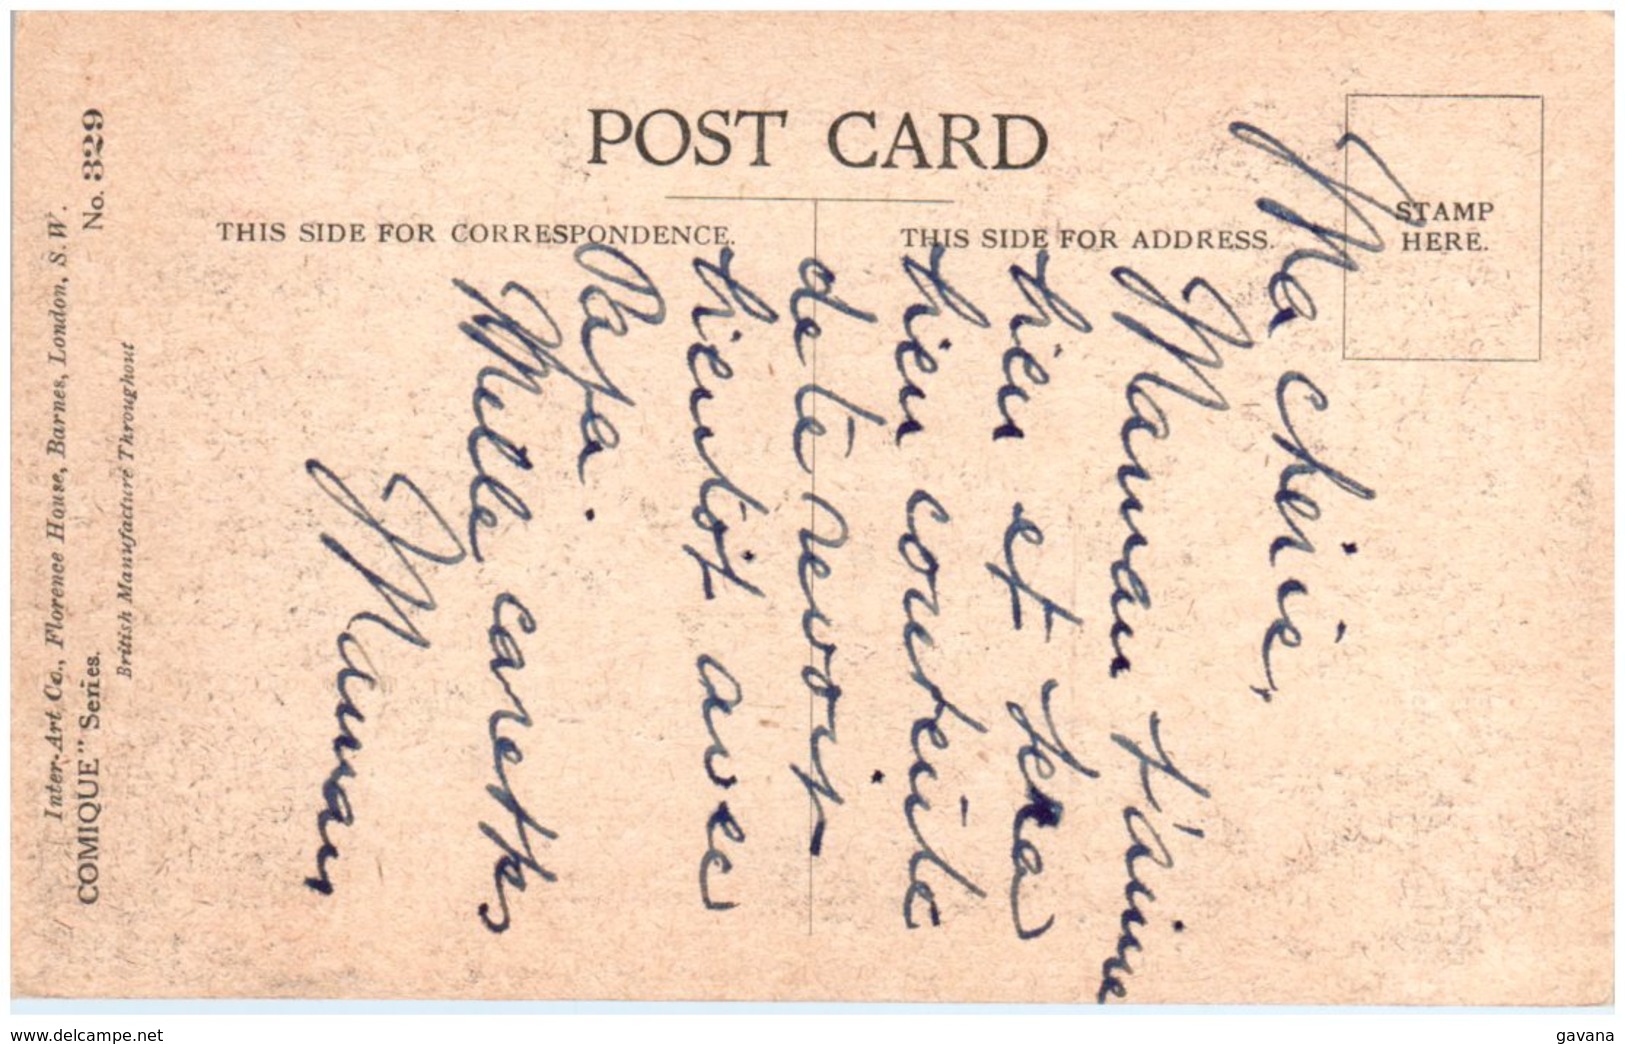 POST CARD
THIS SIDE FOR CORRESPONDENCE.
THIS SIDE FOR ADDRESS.
STAMP
HERE.
Inter-Art Co., Florence House, Barnes, London, S.W.
COMIQUE" Series.
No. 329
British Manufacture Throughout
Ma chérie,
Maman t'aime
bien et sera
bien contente
de te revoir
bientôt avec
Papa.
Mille caresses
Maman
delcampe.net
gavana